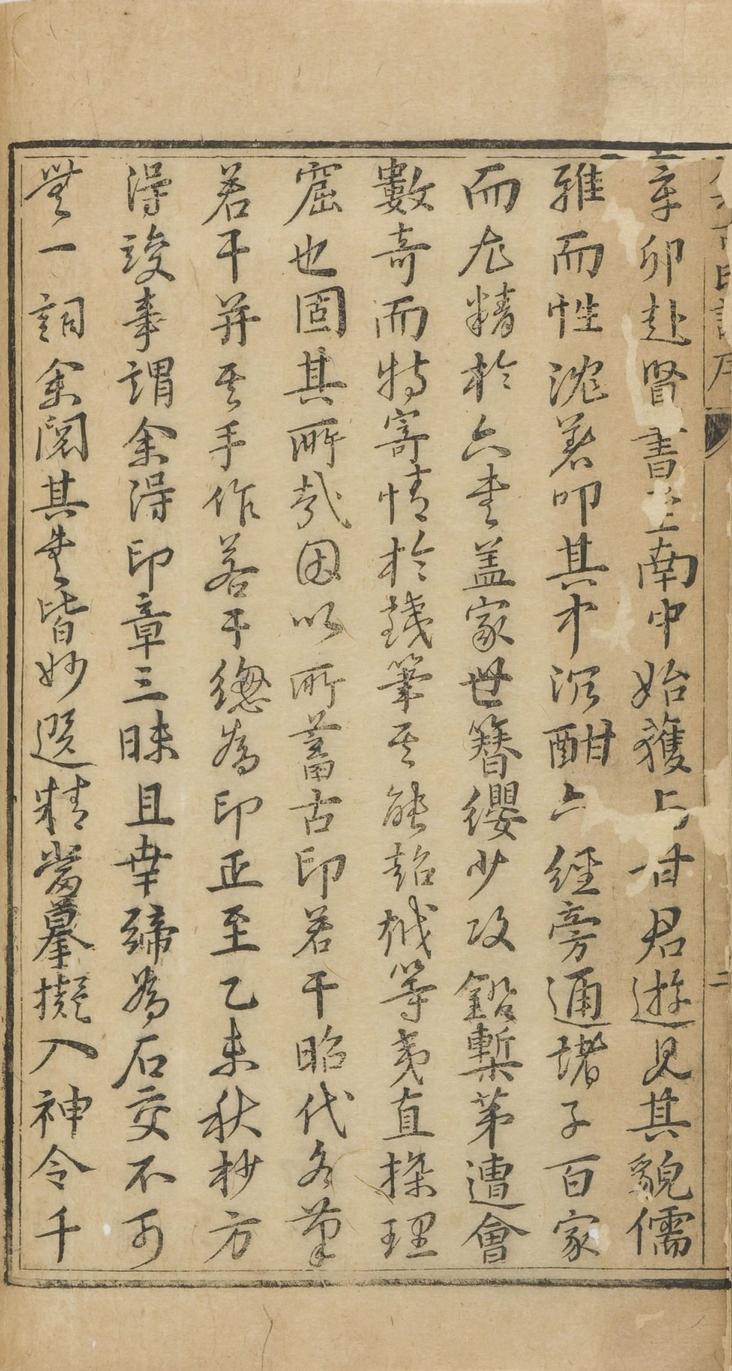 辛卯赴賢書至南中始獲与甘君遊見其貌儒
雅而性沈著叩其中沉酣六經旁通堵子百家
而尤精於六書盖家世簪纓少攻鉛槧第遭會
數奇而特寄情於鐡筆其能超越等夷直探理
窟也固其所哉因以所蓄古印若干昭代名筆
若干并其手作若干總為印正至乙未秋杪方
得竣事謂余得印章三昧且幸締為石交不可
無一詞余閱其書皆妙選精嵓摹擬入神令千
二